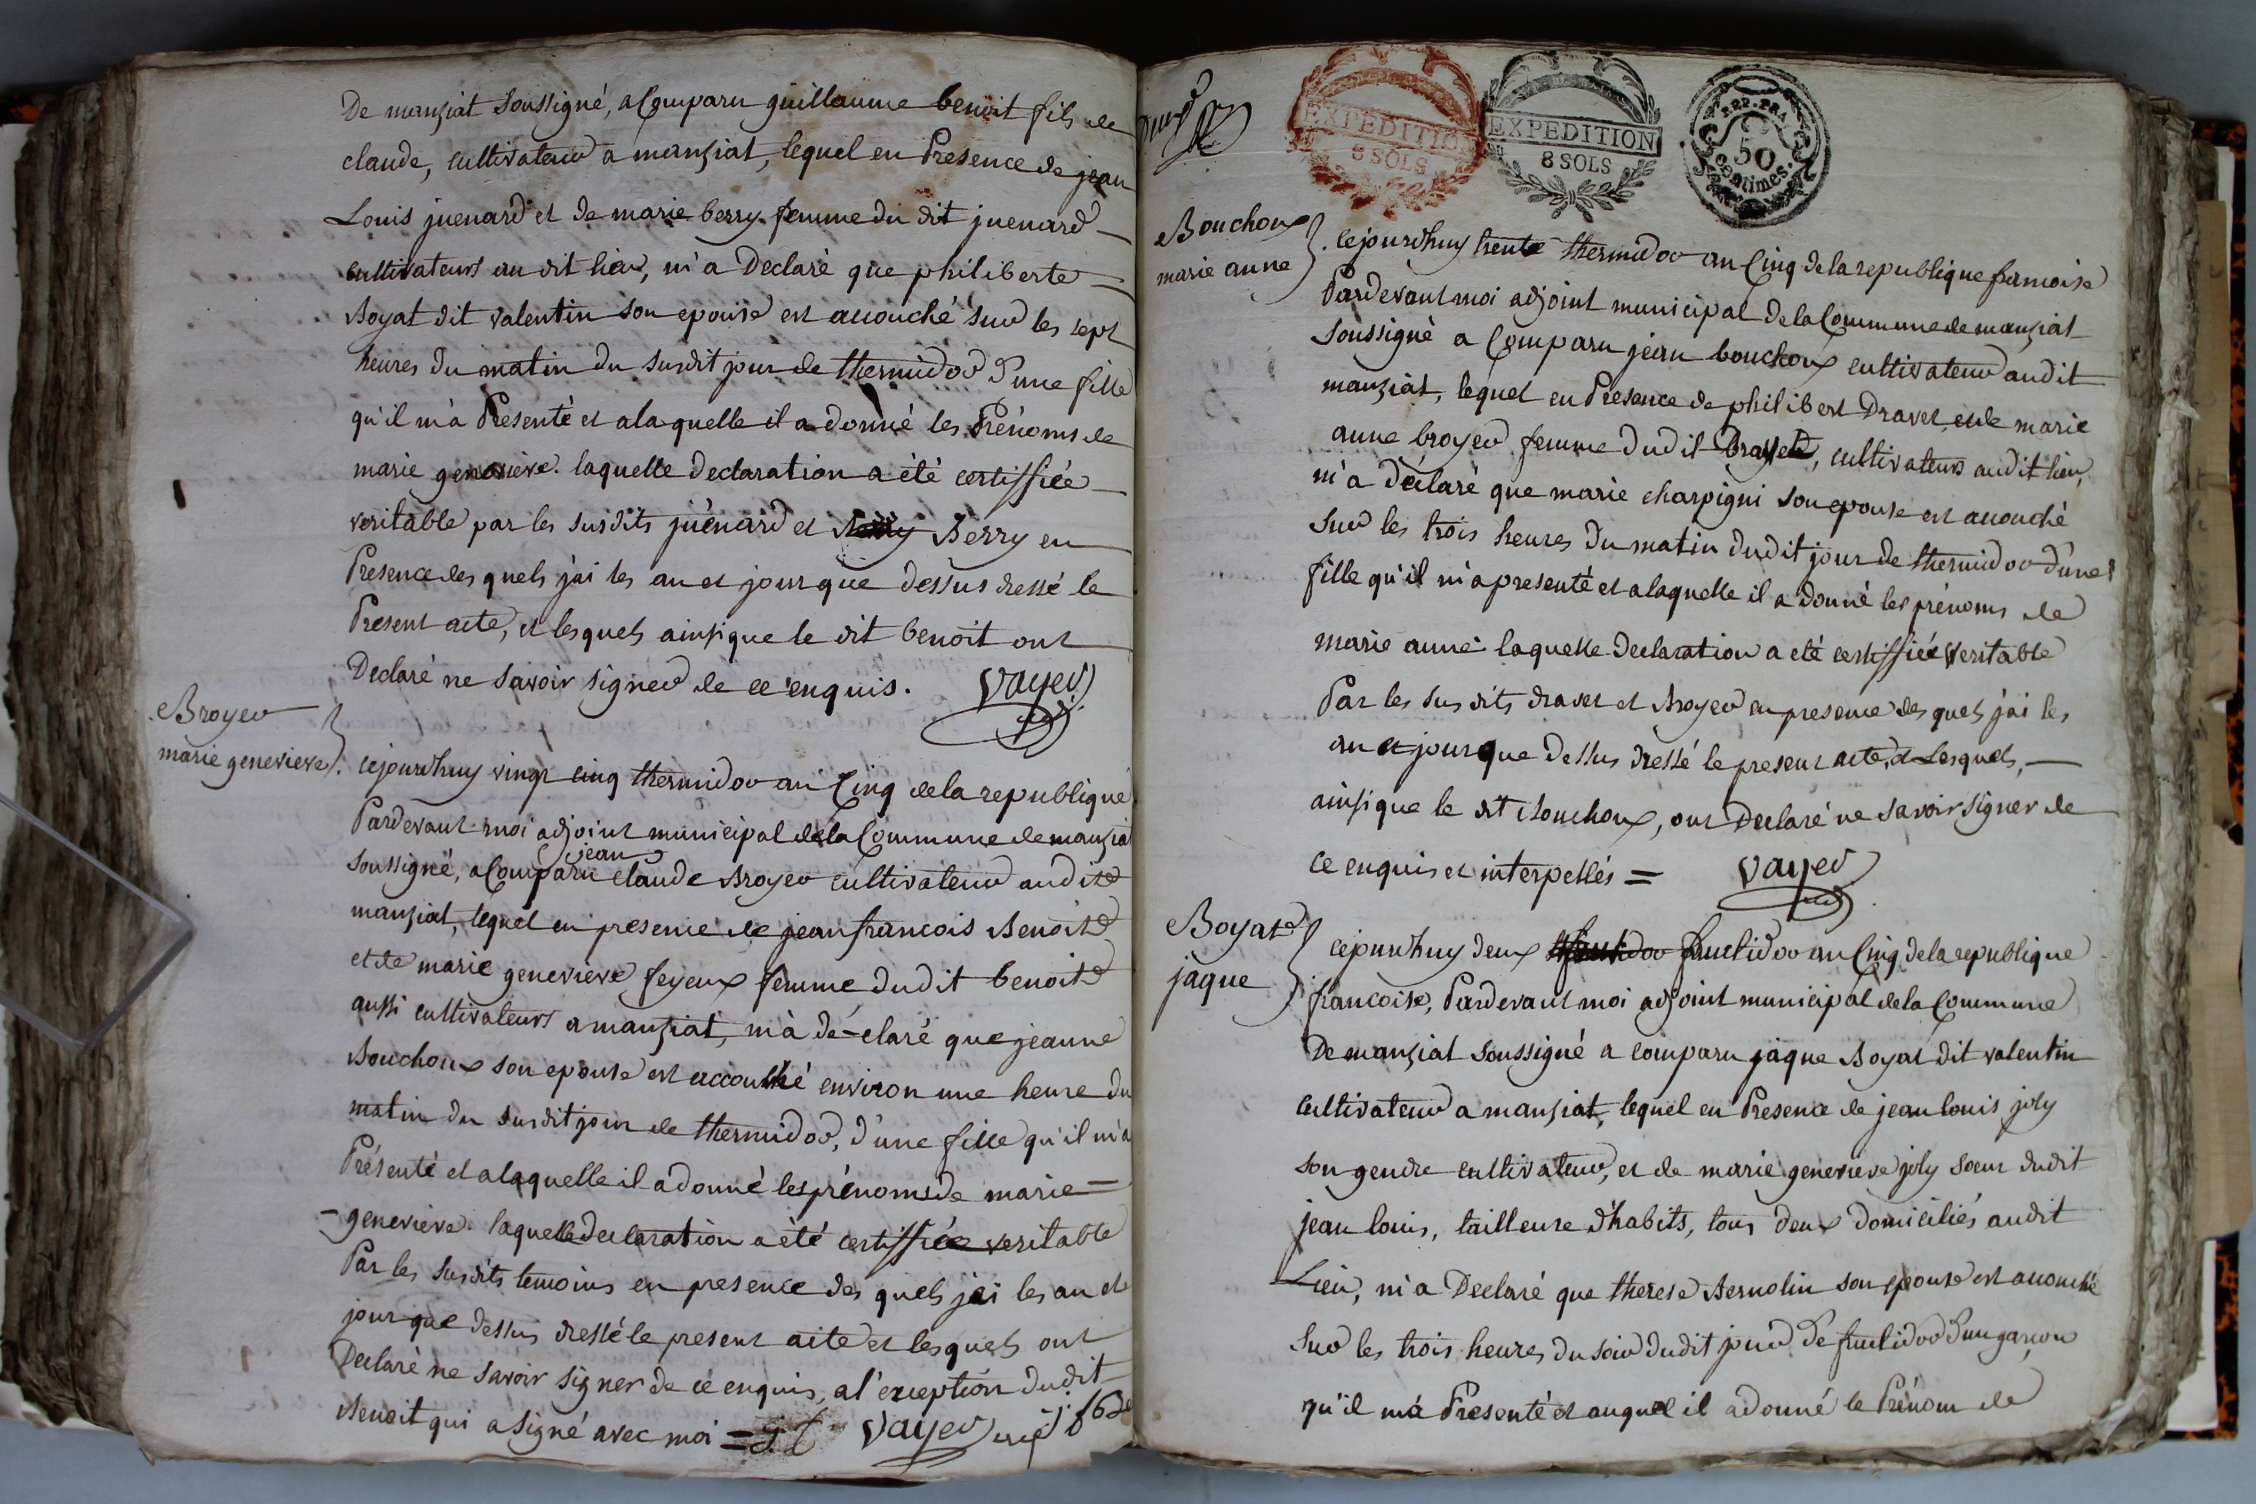 De manziat soussigné, a Comparu guillaume benoit fils de
claude, cultivateur a manziat, lequel en Présence de jean
Louis juenard et de marie berry femme du dit juenard
cultivateurs au dit lieu, m'a Declaré que philiberte
Boyat dit valentin son epouse est acouché sur les sept
heures du matin du susdit jour de thermidor d'une fille
qu'il m'a Présenté et a laquelle il a donné les Prénoms de
marie genevieve. laquelle declaration a été certiffiée
veritable par les susdits juénard et Berry en
Presence des quels j'ai les an et jour que dessus dressé le
Present acte, et lesquels ainsi que le dit benoit ont
Declaré ne savoir signer de ce enquis. vayer
Broyer
marie genevieve
cejourd'huy vingt cinq thermidor an Cinq de la republique
Pardevant moi adjoint municipal de la Commune de manziat
soussigné, a Comparu jean claude Broyer cultivateur audit
manziat, lequel en presence de jean francois Benoit
et de marie genevieve feyeux femme dudit benoit
aussi cultivateurs a manziat, m'à dé-claré que jeanne
Bouchoux son epouse est accouché environ une heure du
matin du susdit jour de thermidor, d'une fille qu'il m'a
Présenté et a laquelle il a donné les prénoms de marie
- genevieve. laquelle declaration a été certiffiée veritable
Par les susdits temoins en presence des quels j'ai les an et
jour que dessus dressé le present acte et lesquels ont
Declaré ne savoir signer de ce enquis, a l'exception dudit
Benoit qui a signé avec moi = vayer
EXPEDITION
8 SOLS
EXPEDITION
8 SOLS
REP. FRA.
50
centimes.
Bouchoux
marie anne
cejourd'huy trente thermidor an Cinq de la republique francoise
Pardevant moi adjoint municipal de la Commune de manziat
soussigné a Comparu jean bouchoux cultivateur audit
manziat, lequel en Présence de philibert Dravet et de marie
anne broyer femme dudit Dravet, cultivateurs audit lieu,
m'a déclaré que marie charpigni son epouse est acouché
sur les trois heures du matin dudit jour de thermidor d'une
fille qu'il m'a presenté et a laquelle il a donné les prénoms de
marie anne laquelle declaration a eté certiffiée veritable
Par les susdits dravet et Broyer en presence des quels j'ai les
an et jour que dessus dressé le present acte, et Lesquels,
ainsi que le dit Bouchoux, ont Declaré ne savoir signer de
ce enquis et interpellés = vayer
Boyat
jaque
cejourd'huy deux fructidor an Cinq de la republique
francoise, Pardevant moi adjoint municipal de la Commune
De manziat soussigné a comparu jaque Boyat dit valentin
cultivateur a manziat, lequel en Presence de jean louis joly
son gendre cultivateur, et de marie genevieve joly soeur dudit
jean louis, tailleure d'habits, tous deux domiciliés audit
Lieu, m'a Declaré que therese Bernolin son epouse est acouché
sur les trois heures du soir dudit jour de fructidor d'un garcon
qu'il m'a Présenté et auquel il a donné le Prénom de